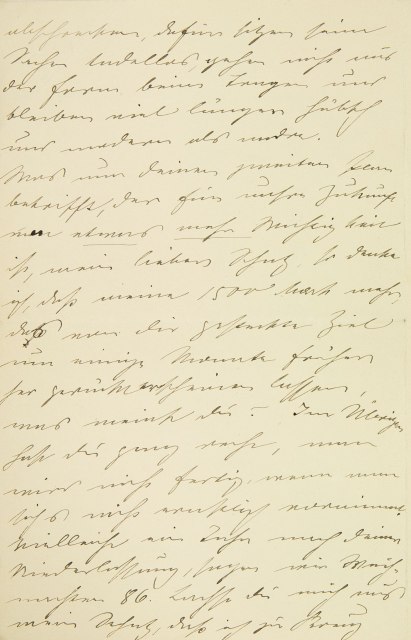 abschrecken, dafür sitzen seine
Sachen tadellos, gehen nicht aus
der Form beim Tragen und
bleiben viel länger hübsch
und modern als andre.
Was nun deinen zweiten Plan
betrifft, der für unsre Zukunft
von etwas mehr Wichtigkeit
ist, mein lieber Schatz, so denke
ich, daß meine 1500 Mark mehr
das von dir gesteckte Ziel
um einige Monate früher
her gerückt erscheinen lassen,
was meinst du? – Im Übrigen
hast du ganz recht, man
wird nicht fertig, wenn man
sich's nicht ernstlich vornimmt.
Vielleicht ein Jahr nach deiner
Niederlassung, sagen wir Weih-
nachten 86. Lache du mich aus
mein Schatz, daß ich zu